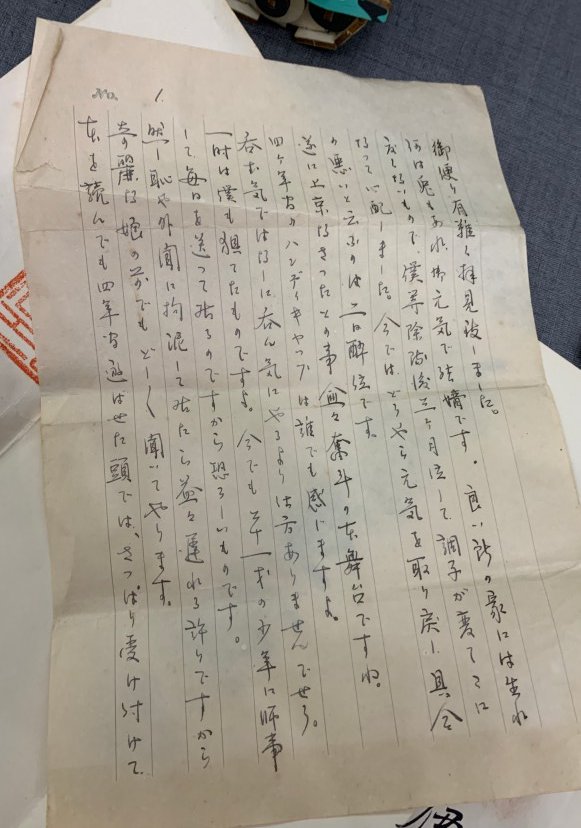 No. 1
御便り有難く拝見致しました。
何は兎もあれ御元気で結構です。良い所の家には生れ
度くないもので僕等除隊後三ヶ月位して調子が変てこに
なって心配しました。今ではどうやら元気を取り戻し具合
の悪いと云ふのは二日酔位です。
遂に上京なさったとの事愈々奮斗の本舞台ですね。
四ヶ年間のハンディキャップは誰でも感じますよ。
呑気ではなしに呑ん気にやるより仕方ありませんでせう。
一時は僕も狼てたものですよ。今でも二十一才の少年に師事
して毎日を送って居るのですから恐ろしいものです。
然し恥や外聞に拘泥して居たら益々遅れる許りですから
奇麗な娘の前でもどしどし聞いてやります。
本を読んでも四年間遊ばせた頭では、さっぱり受け付けて